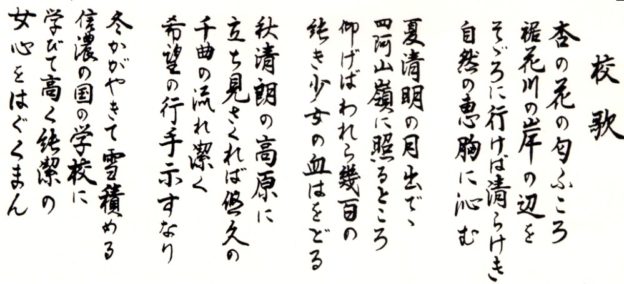 校歌
杏の花の匂ふころ
裾花川の岸の辺を
そゞろに行けば清らけき
自然の恵胸に沁む
夏清明の月出でゝ
四阿山嶺に照るところ
仰げばわれら幾百の
純き少女の血はをどる
秋清朗の高原に
立ち見さくれば悠久の
千曲の流れ潔く
希望の行手示すなり
冬かがやきて雪積める
信濃の国の学校に
学びて高く純潔の
女心をはぐくまん